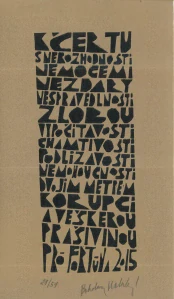 K ČERTU
S NEROZHODNOSTÍ
NEMOCEMI
NEZDARY
NESPRAVEDLNOSTÍ
ZLOBOU
VYPOČÍTAVOSTÍ
CHAMTIVOSTÍ
PODLÍZAVOSTÍ
NEMOHOUCNOSTÍ
KORUPCÍ
A VEŠKEROU
PRAŠIVINOU
PRO FORTUNA 2015